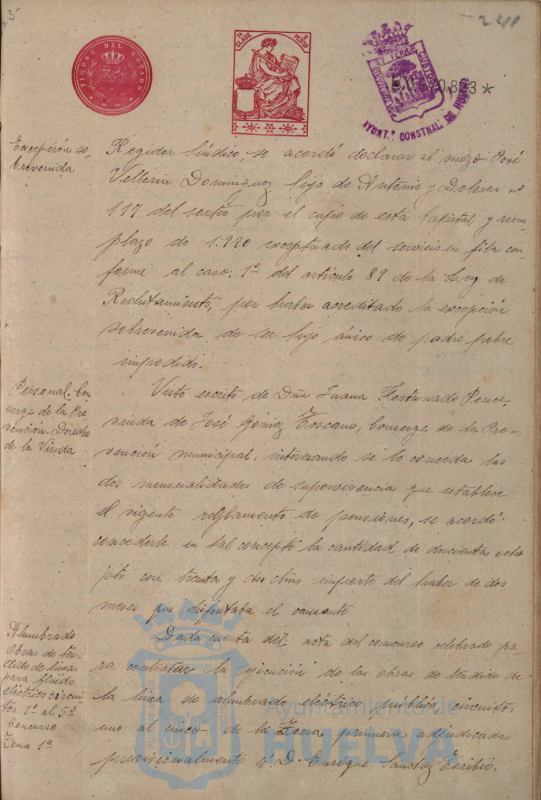 241
TIMBRE DEL ESTADO
AYNTº CONSTNAL DE HUELVA
Excepción so-
brevenida
Regidor Síndico, se acordó declarar al mozo José
Vellerin Dominguez hijo de Antonio y Dolores nº
117 del sorteo por el cupo de esta Capital y reem-
plazo de 1.920 exceptuado del servicio en filas con-
forme al caso 1º del artículo 89 de la Ley de
Reclutamiento, por haber acreditado la excepción
sobrevenida de ser hijo único de padre pobre
impedido.
Personal. Con-
serge de la Pre-
vención. Derechos
de la Viuda
Visto escrito de Dña Juana Fortunado Ponce,
viuda de José Gómez Toscano, Conserge de la Pre-
vención municipal, interesando se le conceda las
dos mensualidades de supervivencia que establece
el vigente reglamento de pensiones, se acordó
concederle en tal concepto la cantidad de doscientas ocho
ptas con treinta y ctms importe del haber de dos
meses que disfrutaba el causante
Alumbrado
Obras de ten-
dido de lineas
para fluido
eléctrico circui-
tos 1º al 5º
Concurso
Zona 1ª
Dada cuenta del acta del concurso celebrado pa-
ra contratar la ejecución de las obras de tendido de
la linea de alumbrado eléctrico público, circuitos
uno al cinco de la Zona primera adjudicadas
provisionalmente a D. Enrique Sanchez
Ayuntamiento de
HUELVA